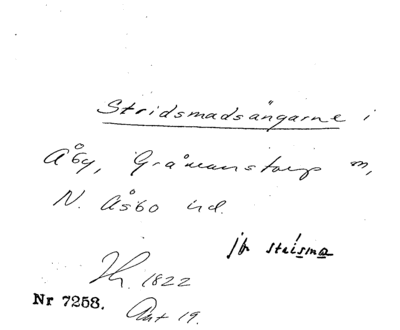 Stridsmadsängarne i
Åby, Gråmanstorps sn,
N. Åsbo hd.
jfr steisma
1822
Nr 7258. Akt 19.